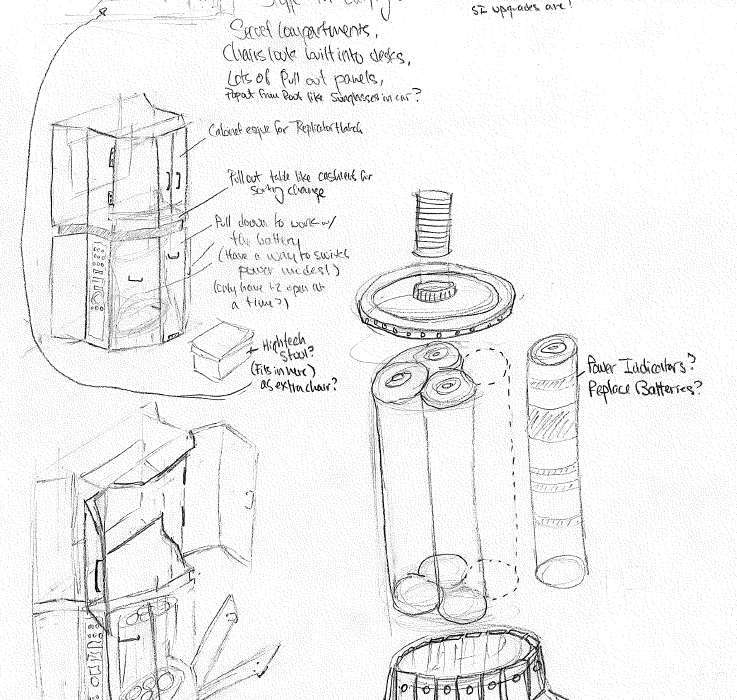 SI upgrades are!
Secret Compartments,
Chairs look built into desks,
Lots of Pull out panels,
Popout from Roof like Sunglasses in car?
Cabinet esque for Replicator Hatch
Pull out table like cashiers for
sorting change
Pull down to work w/
the battery
(Have a way to switch
power modes!)
(only have 1-2 open at
a time?)
Hightech
Stool?
(Fits in here)
as extra chair?
Power Indicators?
Replace Batteries?